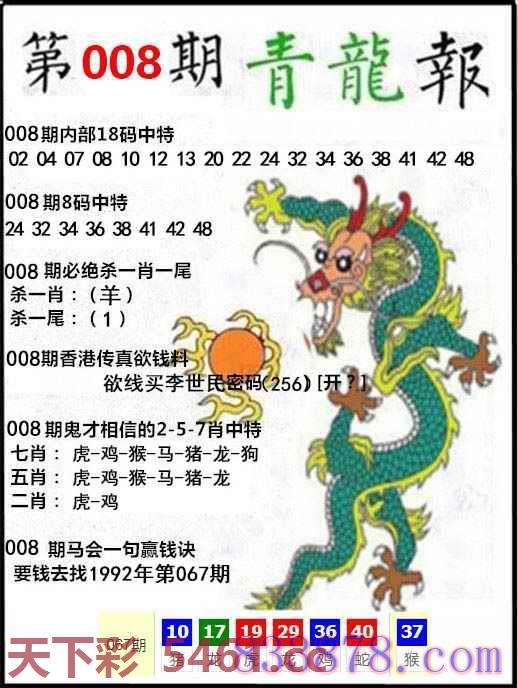 第008期青龍報
008期内部18码中特
02 04 07 08 10 12 13 20 22 24 32 34 36 38 41 42 48
008期8码中特
24 32 34 36 38 41 42 48
008期必绝杀一肖一尾
杀一肖：（羊）
杀一尾：（1）
008期香港传真欲钱料
欲线买李世民密码(256) [开？]
008期鬼才相信的2-5-7肖中特
七肖：虎-鸡-猴-马-猪-龙-狗
五肖：虎-鸡-猴-马-猪-龙
二肖：虎-鸡
008 期马会一句赢钱诀
要钱去找1992年第067期
10 17 19 29 36 40 37
067期 猪 龙 虎 龙 鸡 蛇 猴
天下彩 5461.cc